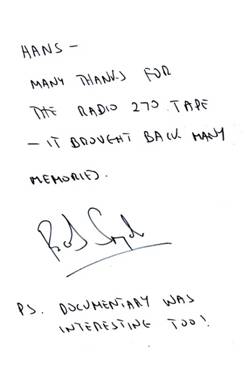 HANS –
MANY THANKS FOR
THE RADIO 270 TAPE
– IT BROUGHT BACK MANY
MEMORIES.
PS. DOCUMENTARY WAS
INTERESTING TOO!